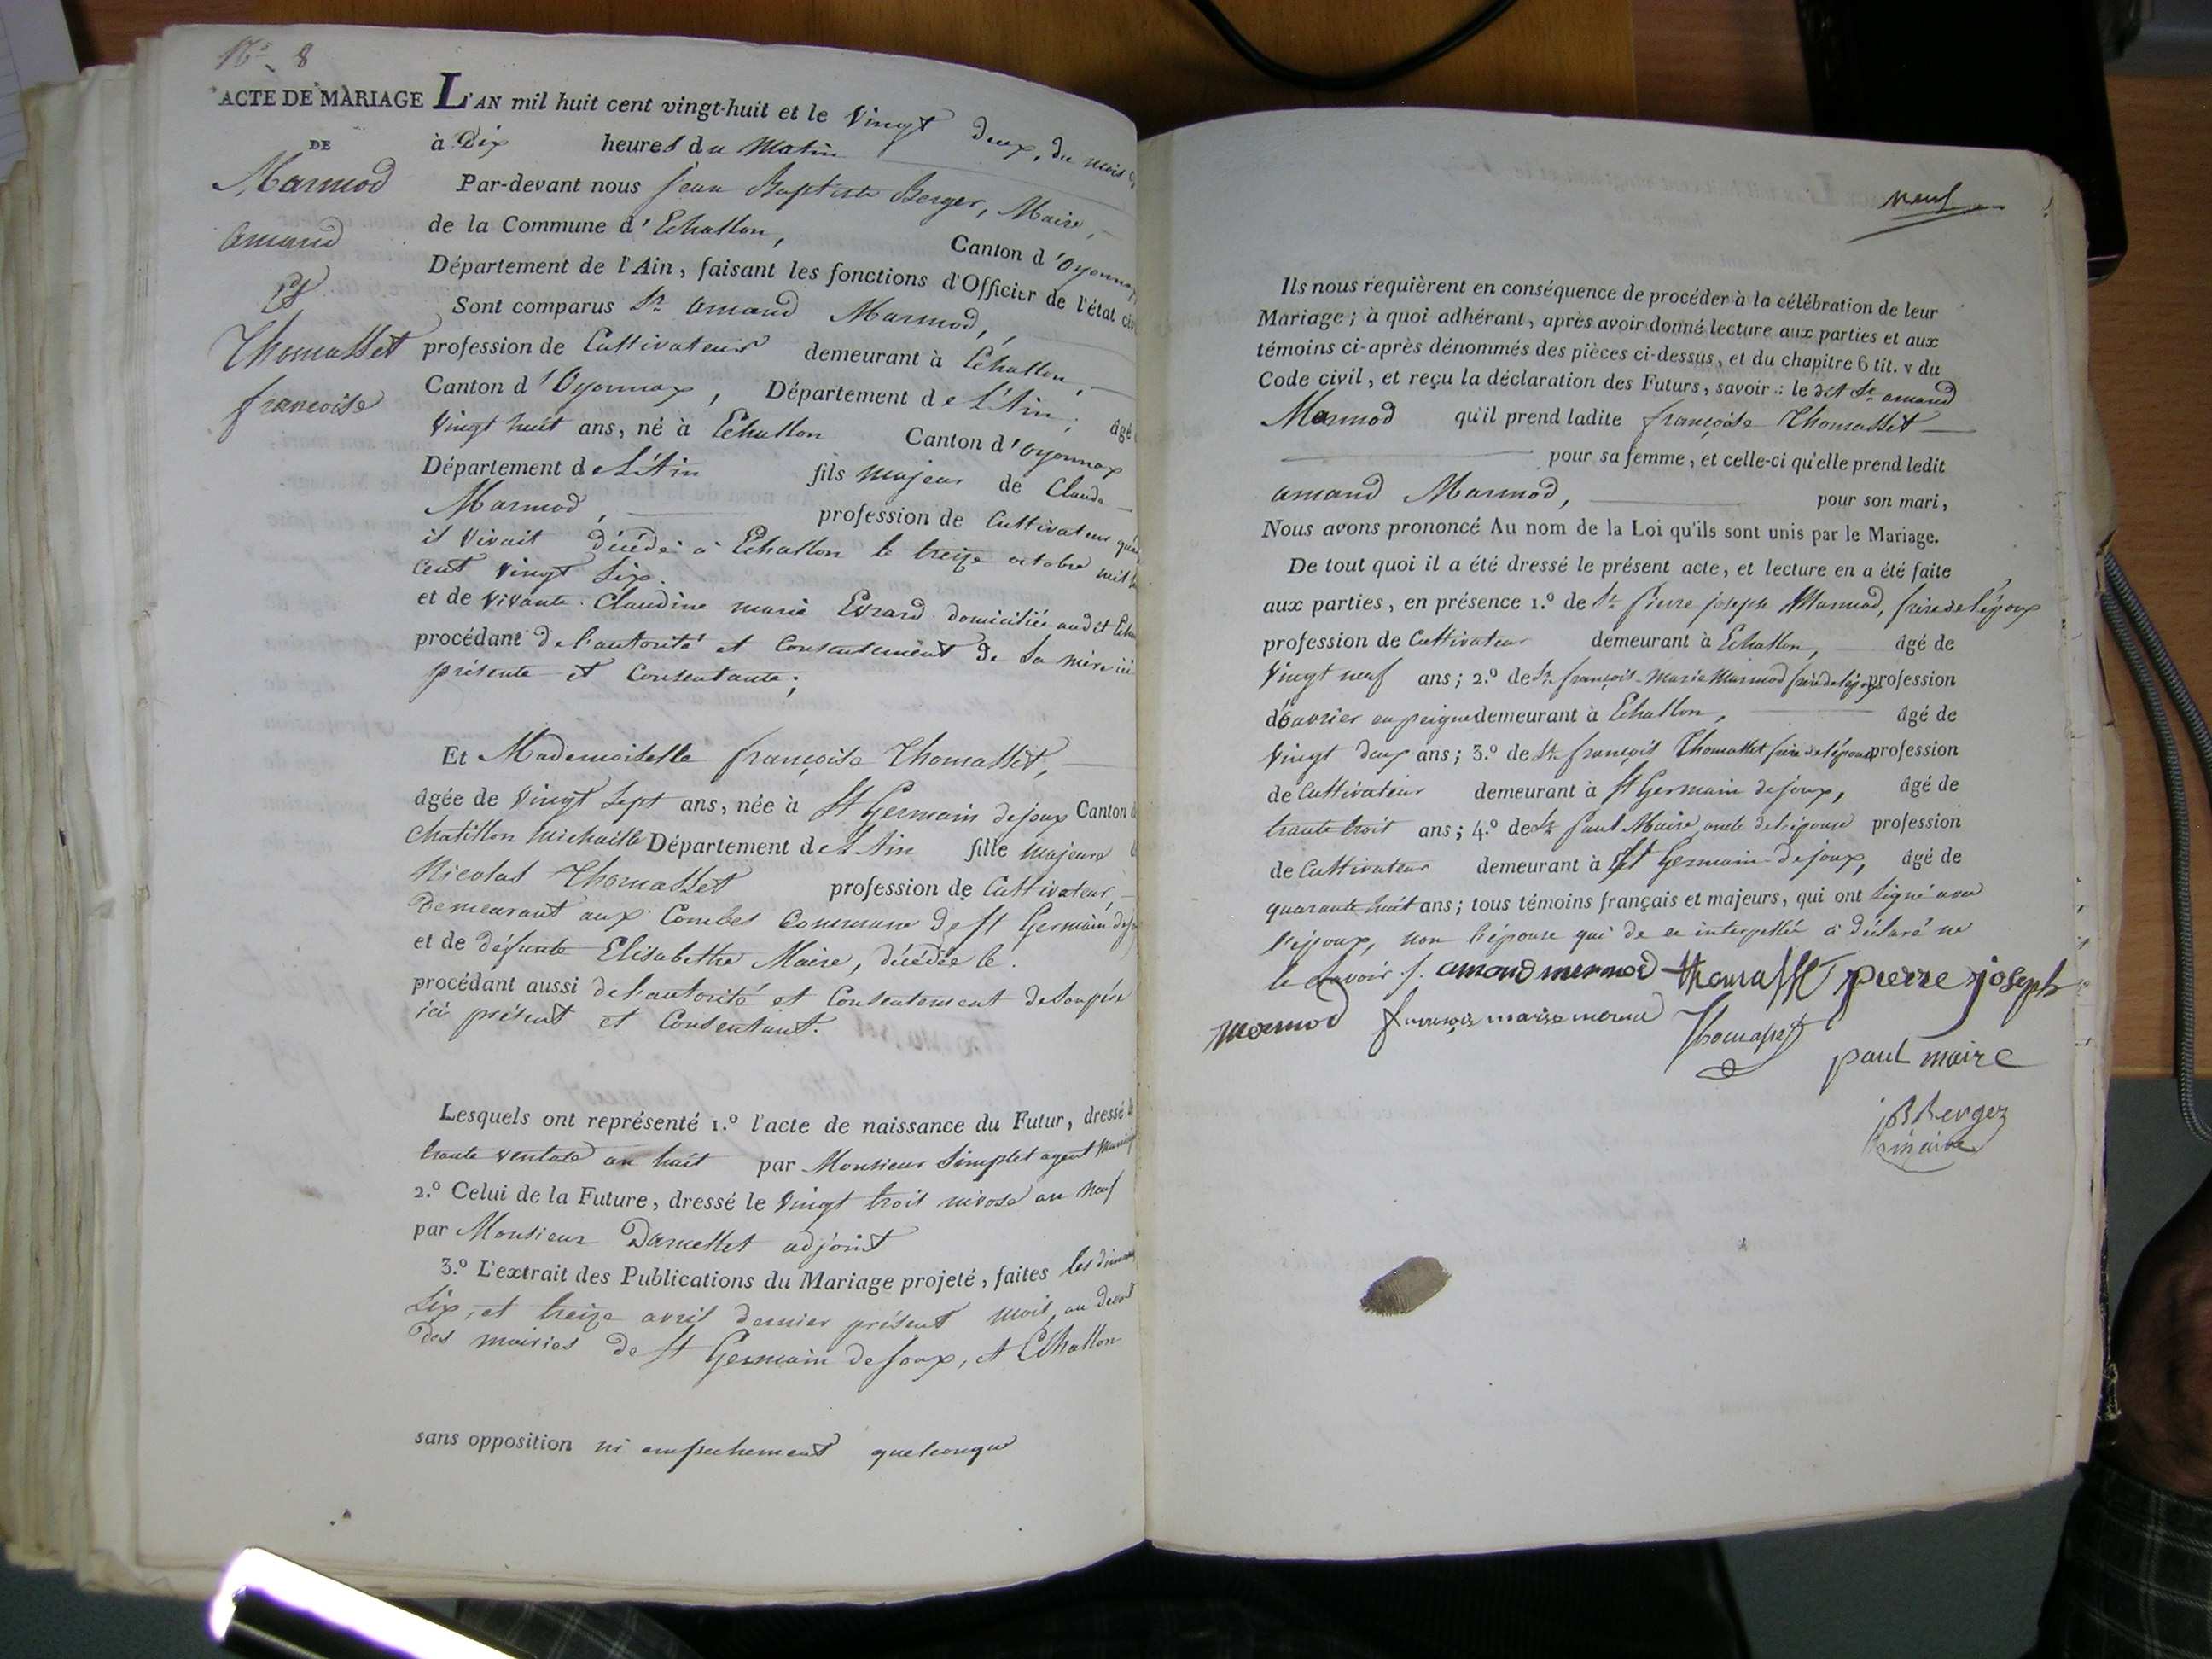 No. 8
ACTE DE MARIAGE
DE
Marmod
amand
et
Thomasset
francoise
L'AN mil huit cent vingt-huit et le Vingt deux, du mois
à Dix heures du Matin
Par-devant nous Jean Baptiste Berger, Maire,
de la Commune d'Echallon, Canton d'Oyonnax
Département de l'Ain, faisant les fonctions d'Officier de l'état civ
Sont comparus Sr. amand Marmod,
profession de Cultivateur demeurant à Echallon,
Canton d'Oyonnax, Département de L'Ain, âgé
Vingt huit ans, né à Echallon Canton d'Oyonnax
Département de L'Ain fils majeur de Claude
Marmod, profession de Cultivateur
il Vivait décédé à Echallon le treize octobre mil
cent vingt Six.
et de Vivante Claudine marie Evrard domiciliée audit
procédant de l'autorité et Consentement de Sa mère ici
présente et Consentante;
Et Mademoiselle françoise Thomasset,
âgée de Vingt Sept ans, née à St Germain dejoux Canton
Chatillon Michaille Département de L'Ain fille majeure
Nicolas Thomasset profession de Cultivateur,
Demeurant aux Combes Commune de St Germain
et de défunte Elisabethe Maire, décédée le.
procédant aussi de l'autorité et Consentement de Son père
ici présent et Consentant.
Lesquels ont représenté 1.º l'acte de naissance du Futur, dressé
trente ventose an huit par Monsieur Simplet agent
2.º Celui de la Future, dressé le Vingt trois nivose an neuf
par Monsieur adjoint
3.º L'extrait des Publications du Mariage projeté, faites les
Six, et treize avril dernier présent mois, au devant
des mairies de St Germain de Joux, et Echallon
sans opposition ni empechement quelconque
neuf
Ils nous requièrent en conséquence de procéder à la célébration de leur
Mariage; à quoi adhérant, après avoir donné lecture aux parties et aux
témoins ci-après dénommés des pièces ci-dessus, et du chapitre 6 tit. v du
Code civil, et reçu la déclaration des Futurs, savoir: le dit Sr amand
Marmod qu'il prend ladite françoise Thomasset
pour sa femme, et celle-ci qu'elle prend ledit
amand Marmod, pour son mari,
Nous avons prononcé Au nom de la Loi qu'ils sont unis par le Mariage.
De tout quoi il a été dressé le présent acte, et lecture en a été faite
aux parties, en présence 1.º de Sr. pierre joseph Marmod, frère de l'époux
profession de Cultivateur demeurant à Echallon, âgé de
Vingt neuf ans; 2.º de Sr. françois-Marie Marmod frère de l'époux profession
d'ouvrier en peigne demeurant à Echallon, âgé de
Vingt deux ans; 3.º de Sr. françois Thomasset frère de l'épouse profession
de Cultivateur demeurant à St Germain dejoux, âgé de
trente trois ans; 4.º de Sr. Paul Maire oncle de l'épouse profession
de Cultivateur demeurant à St Germain-dejoux, âgé de
quarante huit ans; tous témoins français et majeurs, qui ont Signé avec
l'époux, non l'épouse qui de ce interpellée à déclaré ne
le Savoir. amand mermod thomasset pierre joseph
mermod françois marie mermod Thomasset
paul maire
jB Berger
maire